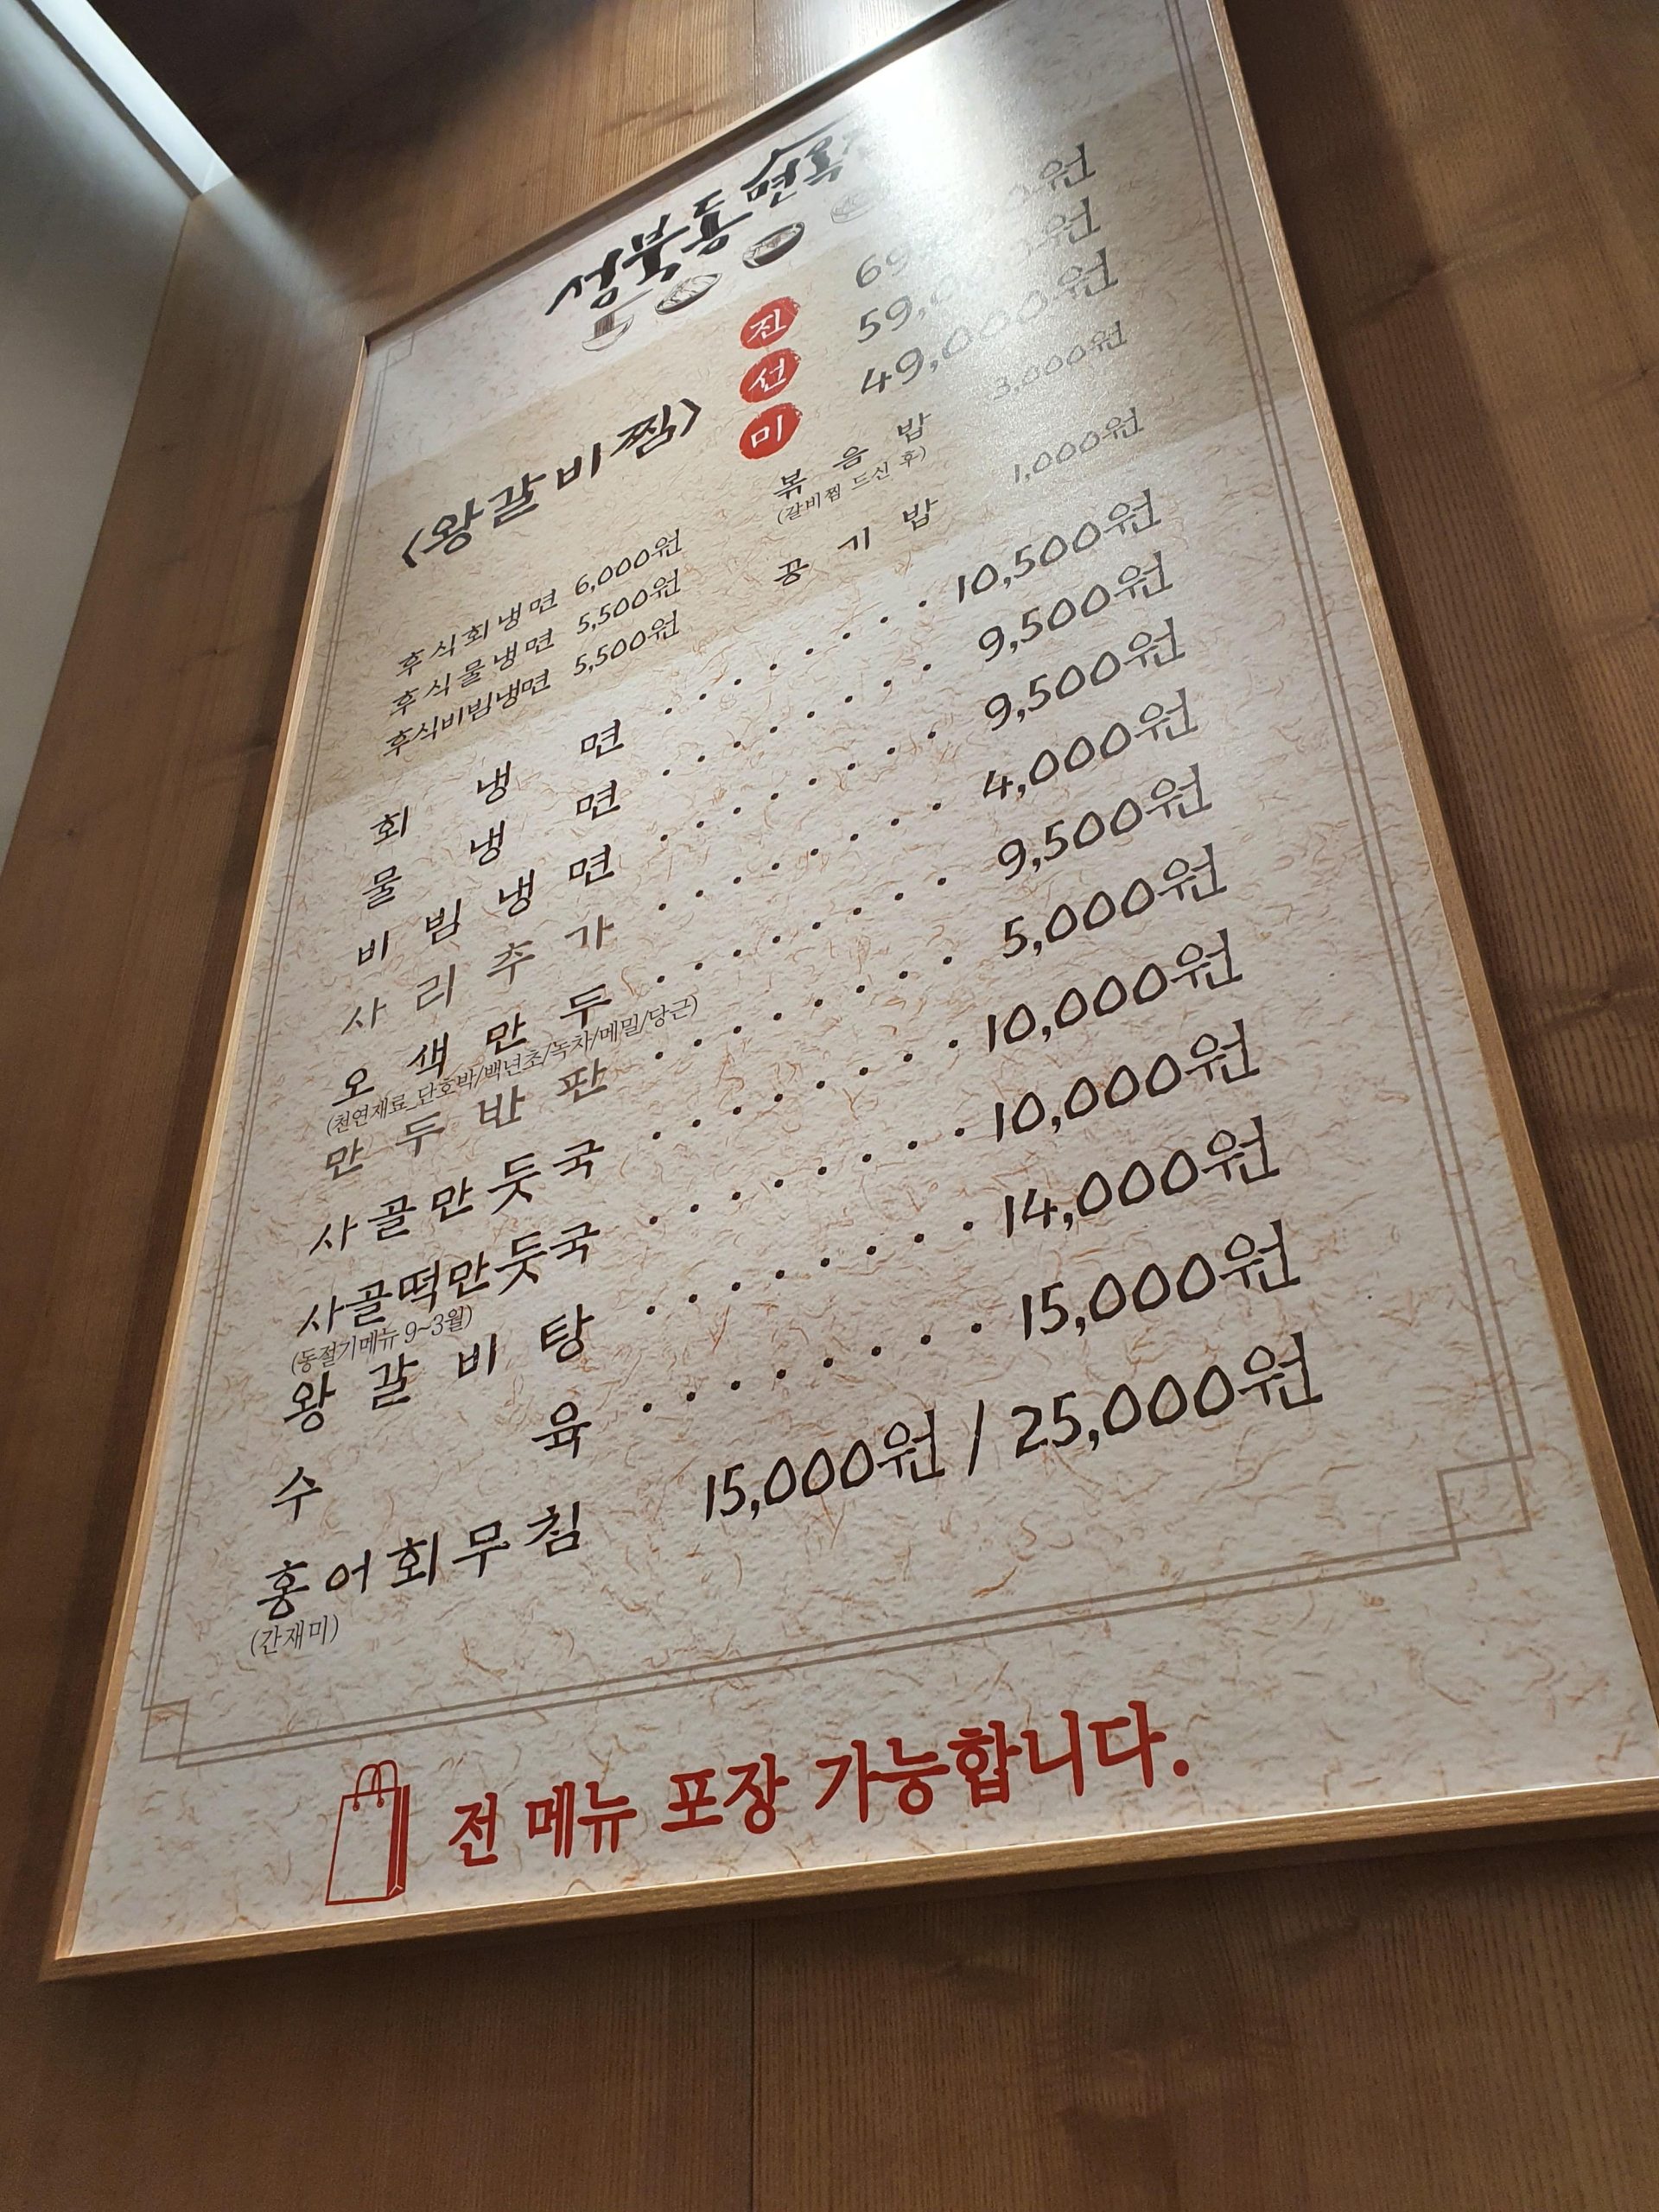 성북동면옥
<왕갈비찜>
진
선
59,000원
미 49,000원
후식회냉면 6,000원
후식물냉면 5,500원
후식비빔냉면 5,500원
볶음밥 3,000원
(갈비찜 드신 후)
공기밥 1,000원
회냉면 . . . . . . . 10,500원
물냉면 . . . . . . . 9,500원
비빔냉면 . . . . . . . 9,500원
사리추가 . . . . . . . 4,000원
오색만두 . . . . . . . 9,500원
(천연재료_단호박/백년초/녹차/메밀/당근)
만두반판 . . . . . . . 5,000원
사골만둣국 . . . . . . . 10,000원
사골떡만둣국 . . . . . . . 10,000원
(동절기메뉴 9~3월)
왕갈비탕 . . . . . . . 14,000원
수육 . . . . . . . 15,000원
홍어회무침 15,000원 / 25,000원
(간재미)
전 메뉴 포장 가능합니다.